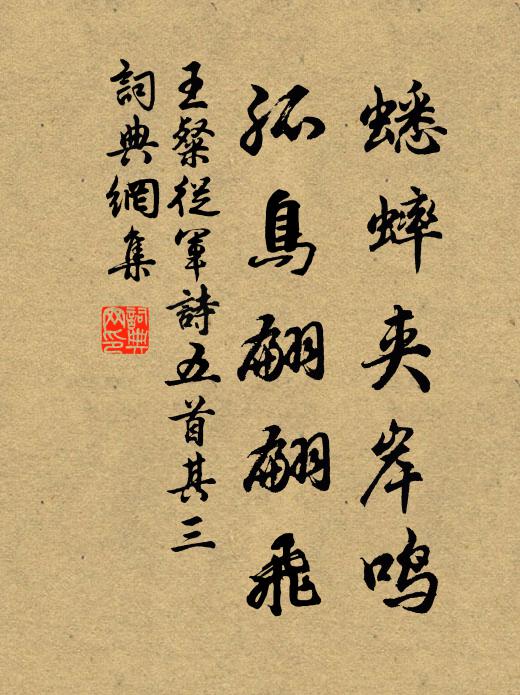 蟋蟀夹岸鸣
孤鳥翩翩飛
王粲從軍詩五首其三
詞典網集
詞典网印